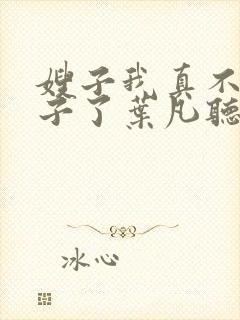 嫂子我真不
子了葉凡聽
冰心